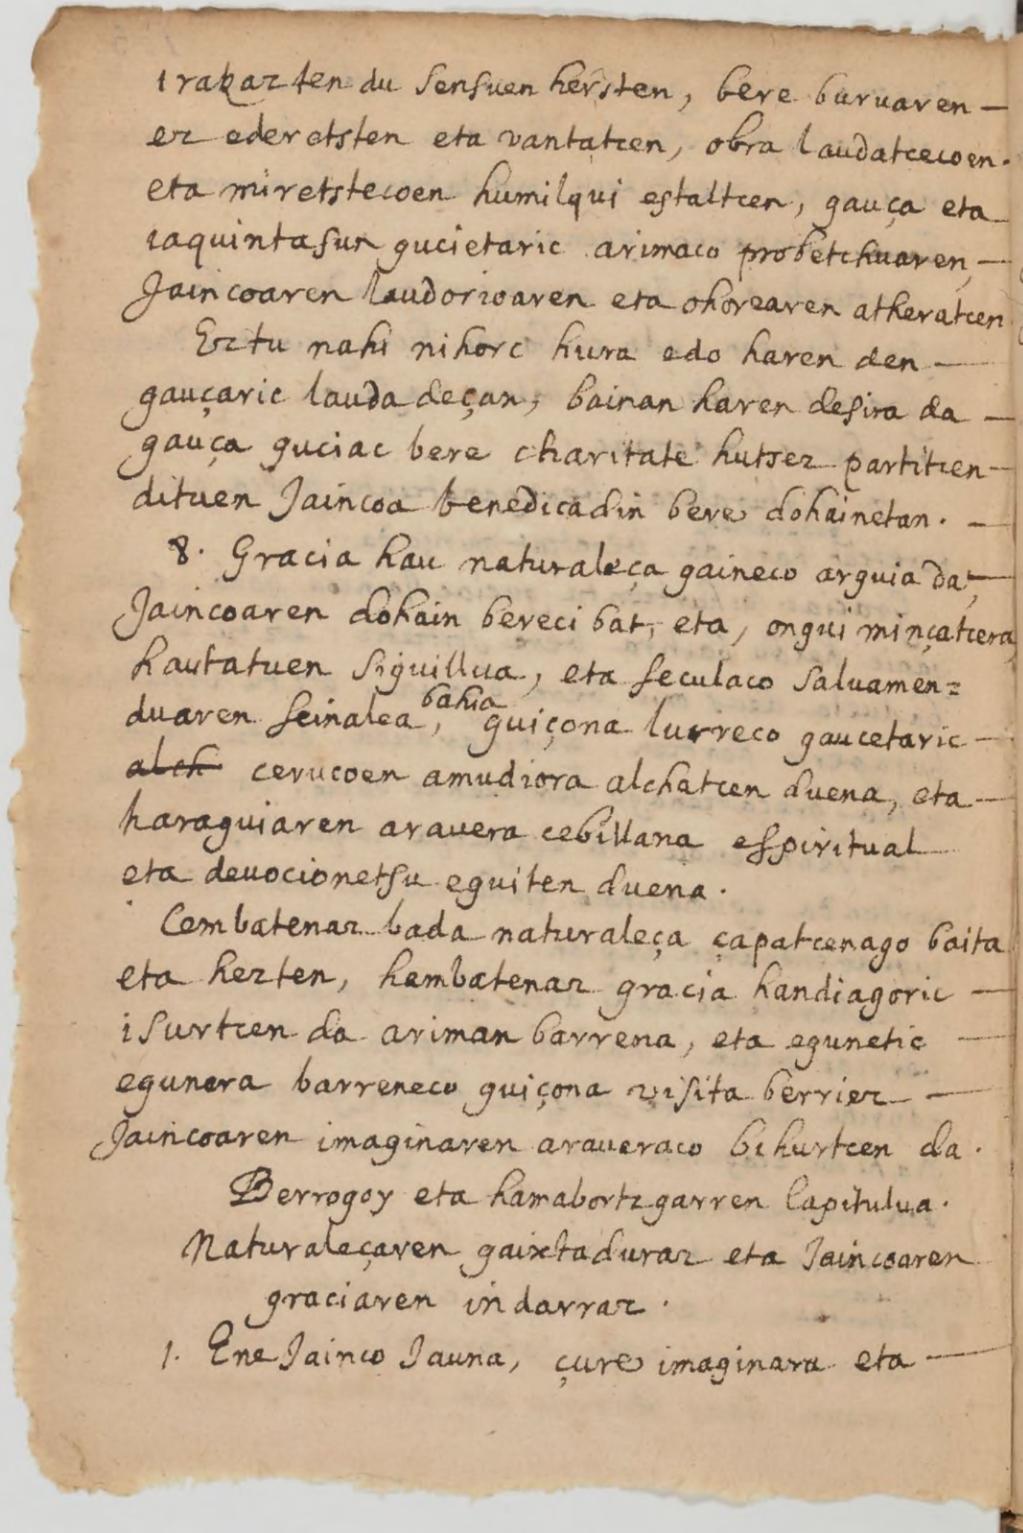 irakazten du sensuen hersten, bere buruaren —
ez ederetsten eta vantatcen, obra laudatcecoen.
eta miretstecoen humilqui estaltcen, gauça eta
iaquintasun gucietaric arimaco probetchuaren, —
Jaincoaren laudorioaren eta ohorearen atheratcen
Eztu nahi nihorc hura edo haren den —
gauçaric lauda deçan, bainan haren desira da —
gauça guciac bere charitate hutsez partitcen —
dituen Jaincoa benedicadin bere dohainetan. —
8. Gracia hau naturaleça gaineco arguia da, —
Jaincoaren dohain bereci bat, eta, ongui minçatcera,
hautatuen siguillua, eta seculaco saluamen=
duaren seinalea, bahia guiçona lurreco gaucetaric —
alch cerucoen amudiora alchatcen duena, eta —
haraguiaren arauera cebillana espiritual
eta deuocionetsu eguiten duena.
Cembatenaz bada naturaleça çapatcenago baita
eta hezten, hambatenaz gracia handiagoric —
isurtcen da ariman barrena, eta egunetic —
egunera barreneco guiçona visita berriez —
Jaincoaren imaginaren araueraco bihurtcen da.
Berrogoy eta hamabortzgarren Capitulua.
Naturaleçaren gaixtaduraz eta Jaincoaren
graciaren indarraz.
1. Ene Jainco Jauna, çure imaginara eta —